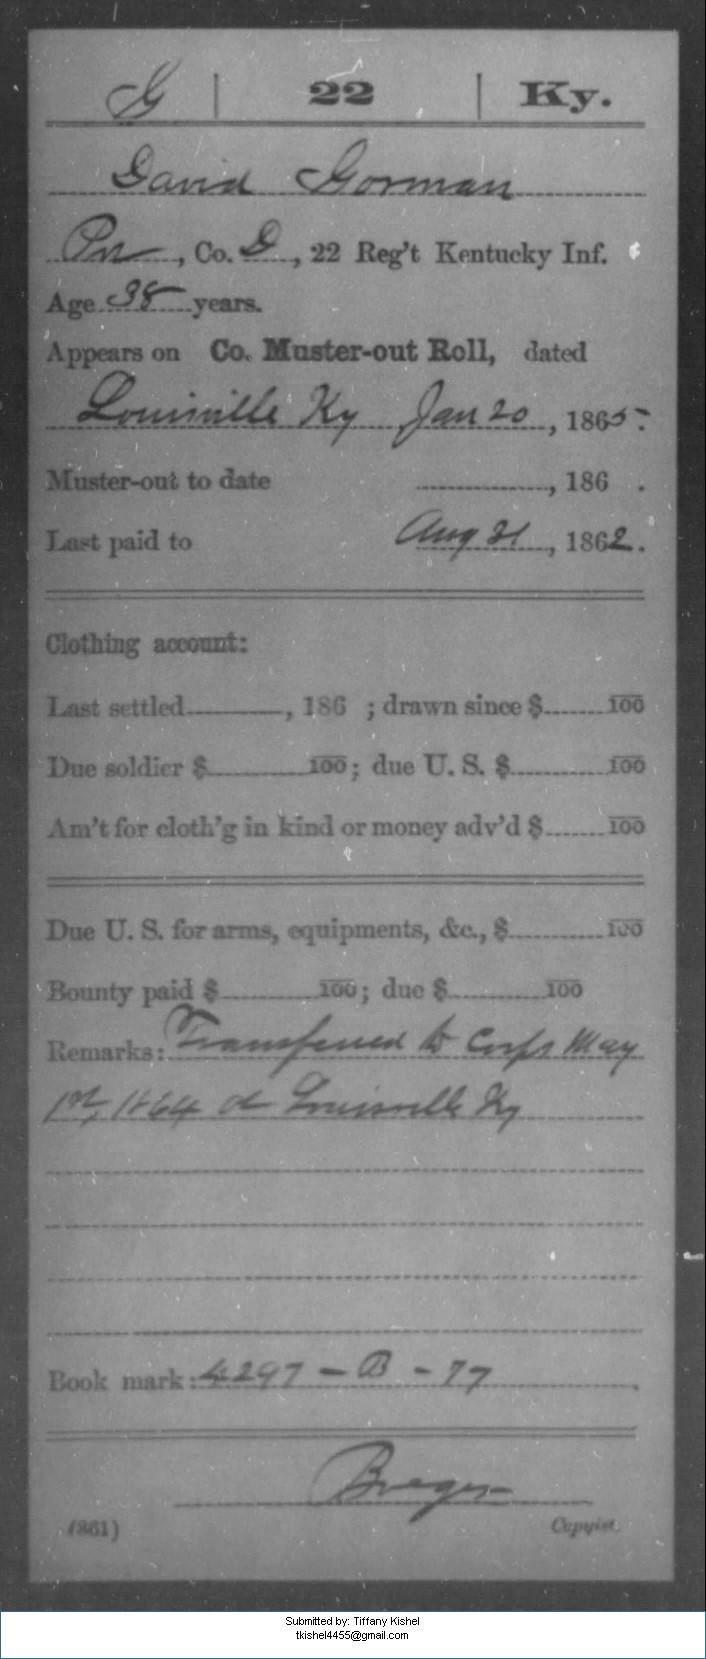 G | 22 | Ky.
David Gorman
Pvt, Co. D, 22 Reg't Kentucky Inf.
Age 38 years.
Appears on Co. Muster-out Roll, dated
Louisville Ky Jan 20, 1865.
Muster-out to date , 186 .
Last paid to Aug 31, 1862.
Clothing account:
Last settled , 186 ; drawn since $ 100
Due soldier $ 100; due U. S. $ 100
Am't for cloth'g in kind or money adv'd $ 100
Due U. S. for arms, equipments, &c., $ 100
Bounty paid $ 100; due $ 100
Remarks: Transferred to Corps May
1st, 1864 at Louisville Ky
Book mark: 4297-B-77
(361) Copyist.
Submitted by: Tiffany Kishel
tkishel4455@gmail.com